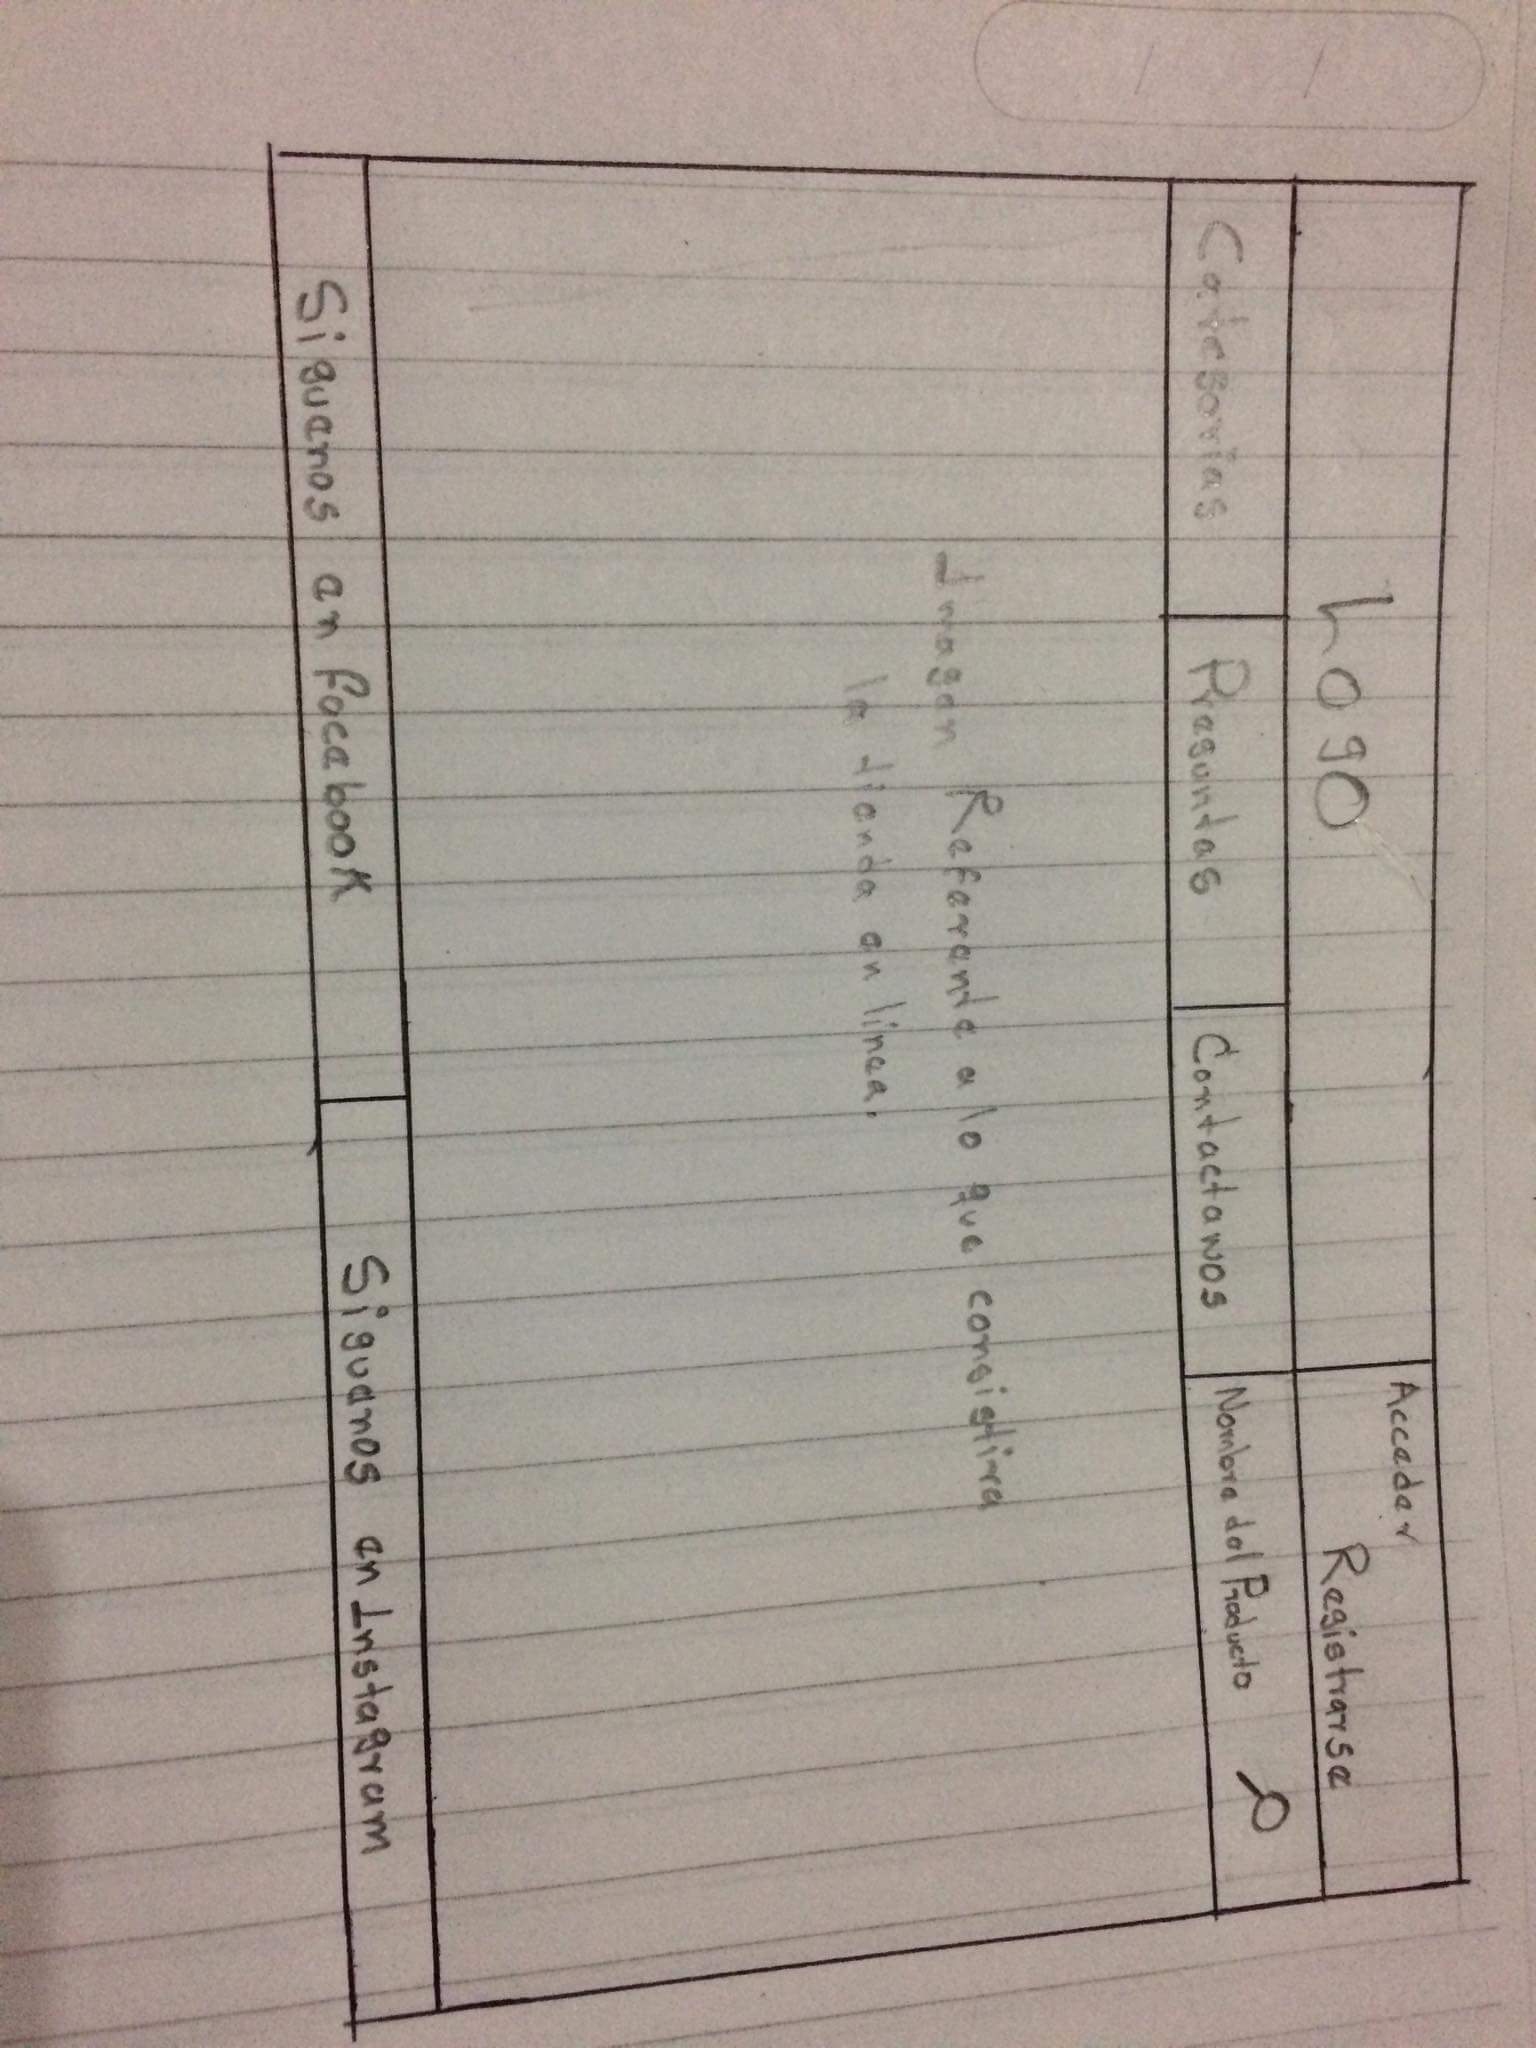 Logo
Acceder
Registrarse
Categorias
Preguntas
Contactanos
Nombre del Producto
Imagen Referente a lo que consistira
la tienda en linea.
Siguenos en facebook
Siguenos en Instagram